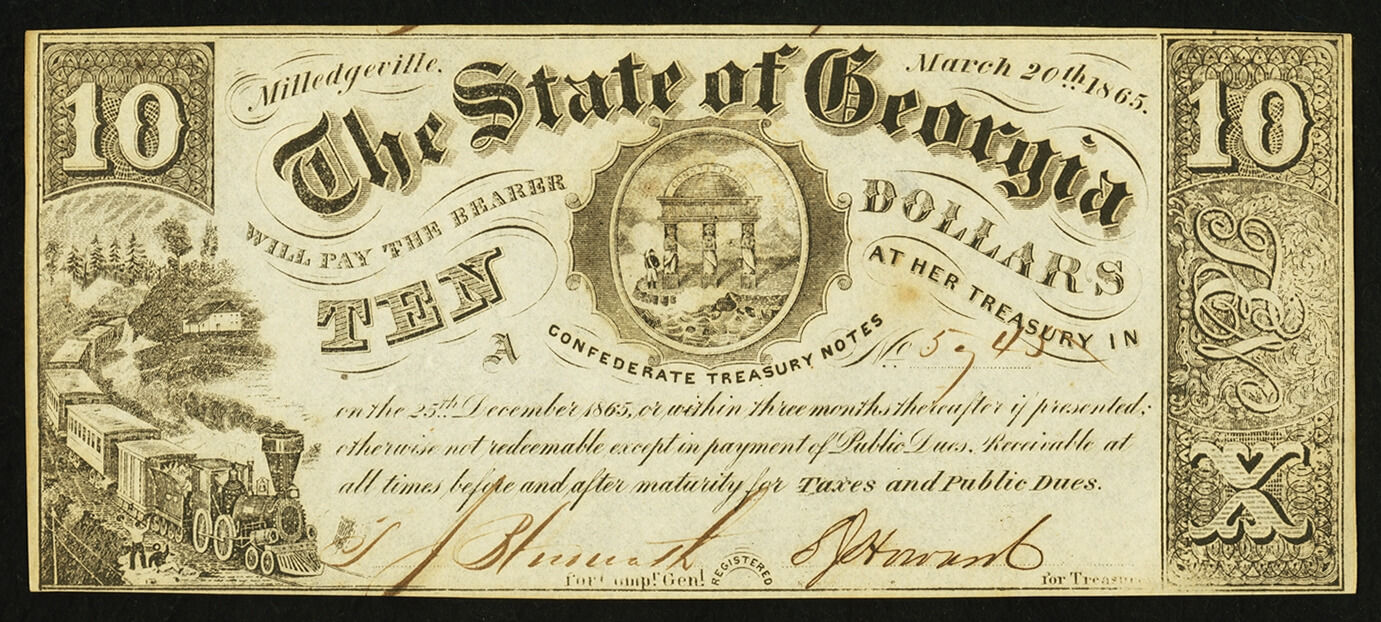 10
Milledgeville,
March 20th 1865.
10
The State of Georgia
WILL PAY THE BEARER
TEN
DOLLARS
AT HER TREASURY IN
CONFEDERATE TREASURY NOTES
A
No
on the 25th December 1865, or within three months thereafter if presented;
otherwise not redeemable except in payment of Public Dues. Receivable at
all times before and after maturity for Taxes and Public Dues.
Howard
for Comp! Gen!
REGISTERED
for Treasu
X